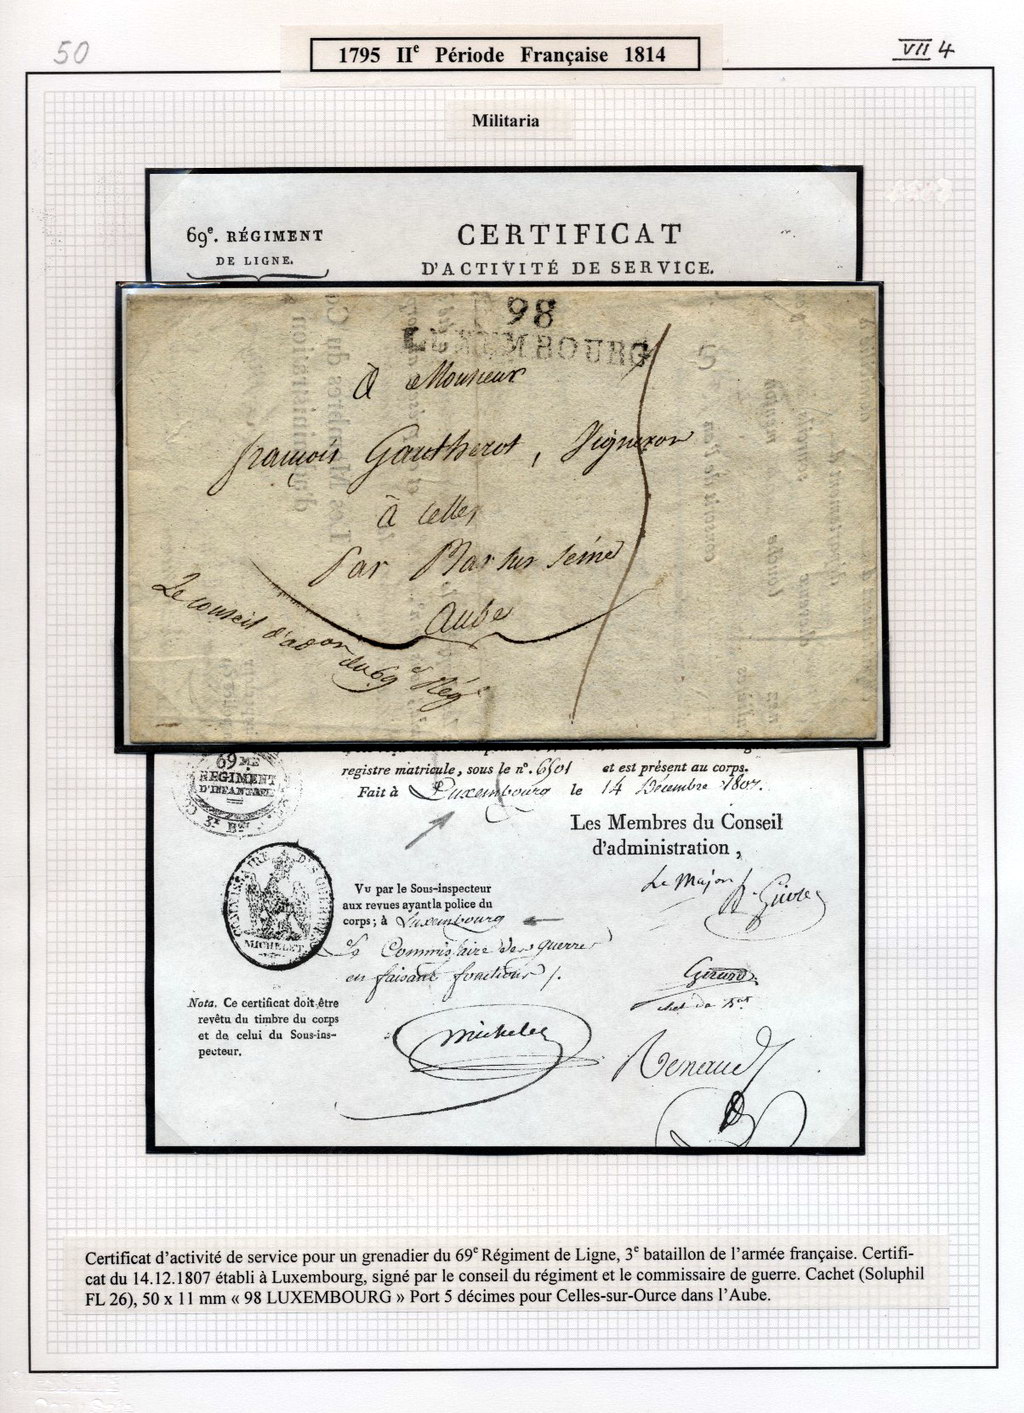 50
1795 IIe Période Française 1814
VII 4
Militaria
69e. RÉGIMENT
DE LIGNE.
CERTIFICAT
D'ACTIVITÉ DE SERVICE.
98
LUXEMBOURG
5
à Monsieur
françois Gautherot, Vigneron
à Celles
Par Bar sur Seine
Aube
Le conseil d'adon
du 69e Rég
69ME
REGIMENT
D'INFANTERIE
3e Bon
registre matricule, sous le no. 6501 et est présent au corps.
Fait à Luxembourg le 14 Décembre 1807.
Les Membres du Conseil
d'administration,
Le Major
COMMISSAIRE DES GUERRES
MICHELET
Vu par le Sous-inspecteur
aux revues ayant la police du
corps; à Luxembourg
Commissaire des guerres
en faisant fonctions
Girard
chef de Bat
Michelet
Renaud
Nota. Ce certificat doit être
revêtu du timbre du corps
et de celui du Sous-ins-
pecteur.
Certificat d'activité de service pour un grenadier du 69e Régiment de Ligne, 3e bataillon de l'armée française. Certifi-
cat du 14.12.1807 établi à Luxembourg, signé par le conseil du régiment et le commissaire de guerre. Cachet (Soluphil
FL 26), 50 x 11 mm « 98 LUXEMBOURG » Port 5 décimes pour Celles-sur-Ource dans l'Aube.